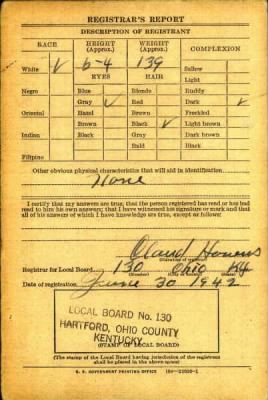 REGISTRAR'S REPORT
DESCRIPTION OF REGISTRANT
RACE HEIGHT (Approx.) WEIGHT (Approx.) COMPLEXION
White ✓ 6-4 139 Sallow
EYES HAIR Light
Negro Blue Blonde Ruddy
Gray ✓ Red Dark ✓
Oriental Hazel Brown Freckled
Brown Black ✓ Light brown
Indian Black Gray Dark brown
Bald Black
Filipino
Other obvious physical characteristics that will aid in identification
None
I certify that my answers are true; that the person registered has read or has had
read to him his own answers; that I have witnessed his signature or mark and that
all of his answers of which I have knowledge are true, except as follows:
Claud
Registrar for Local Board 130 Ohio Ky
Date of registration June 30 1942
LOCAL BOARD No. 130
HARTFORD, OHIO COUNTY
KENTUCKY
(STAMP OF LOCAL BOARD)
(The stamp of the Local Board having jurisdiction of the registrant
shall be placed in the above space)
U. S. GOVERNMENT PRINTING OFFICE